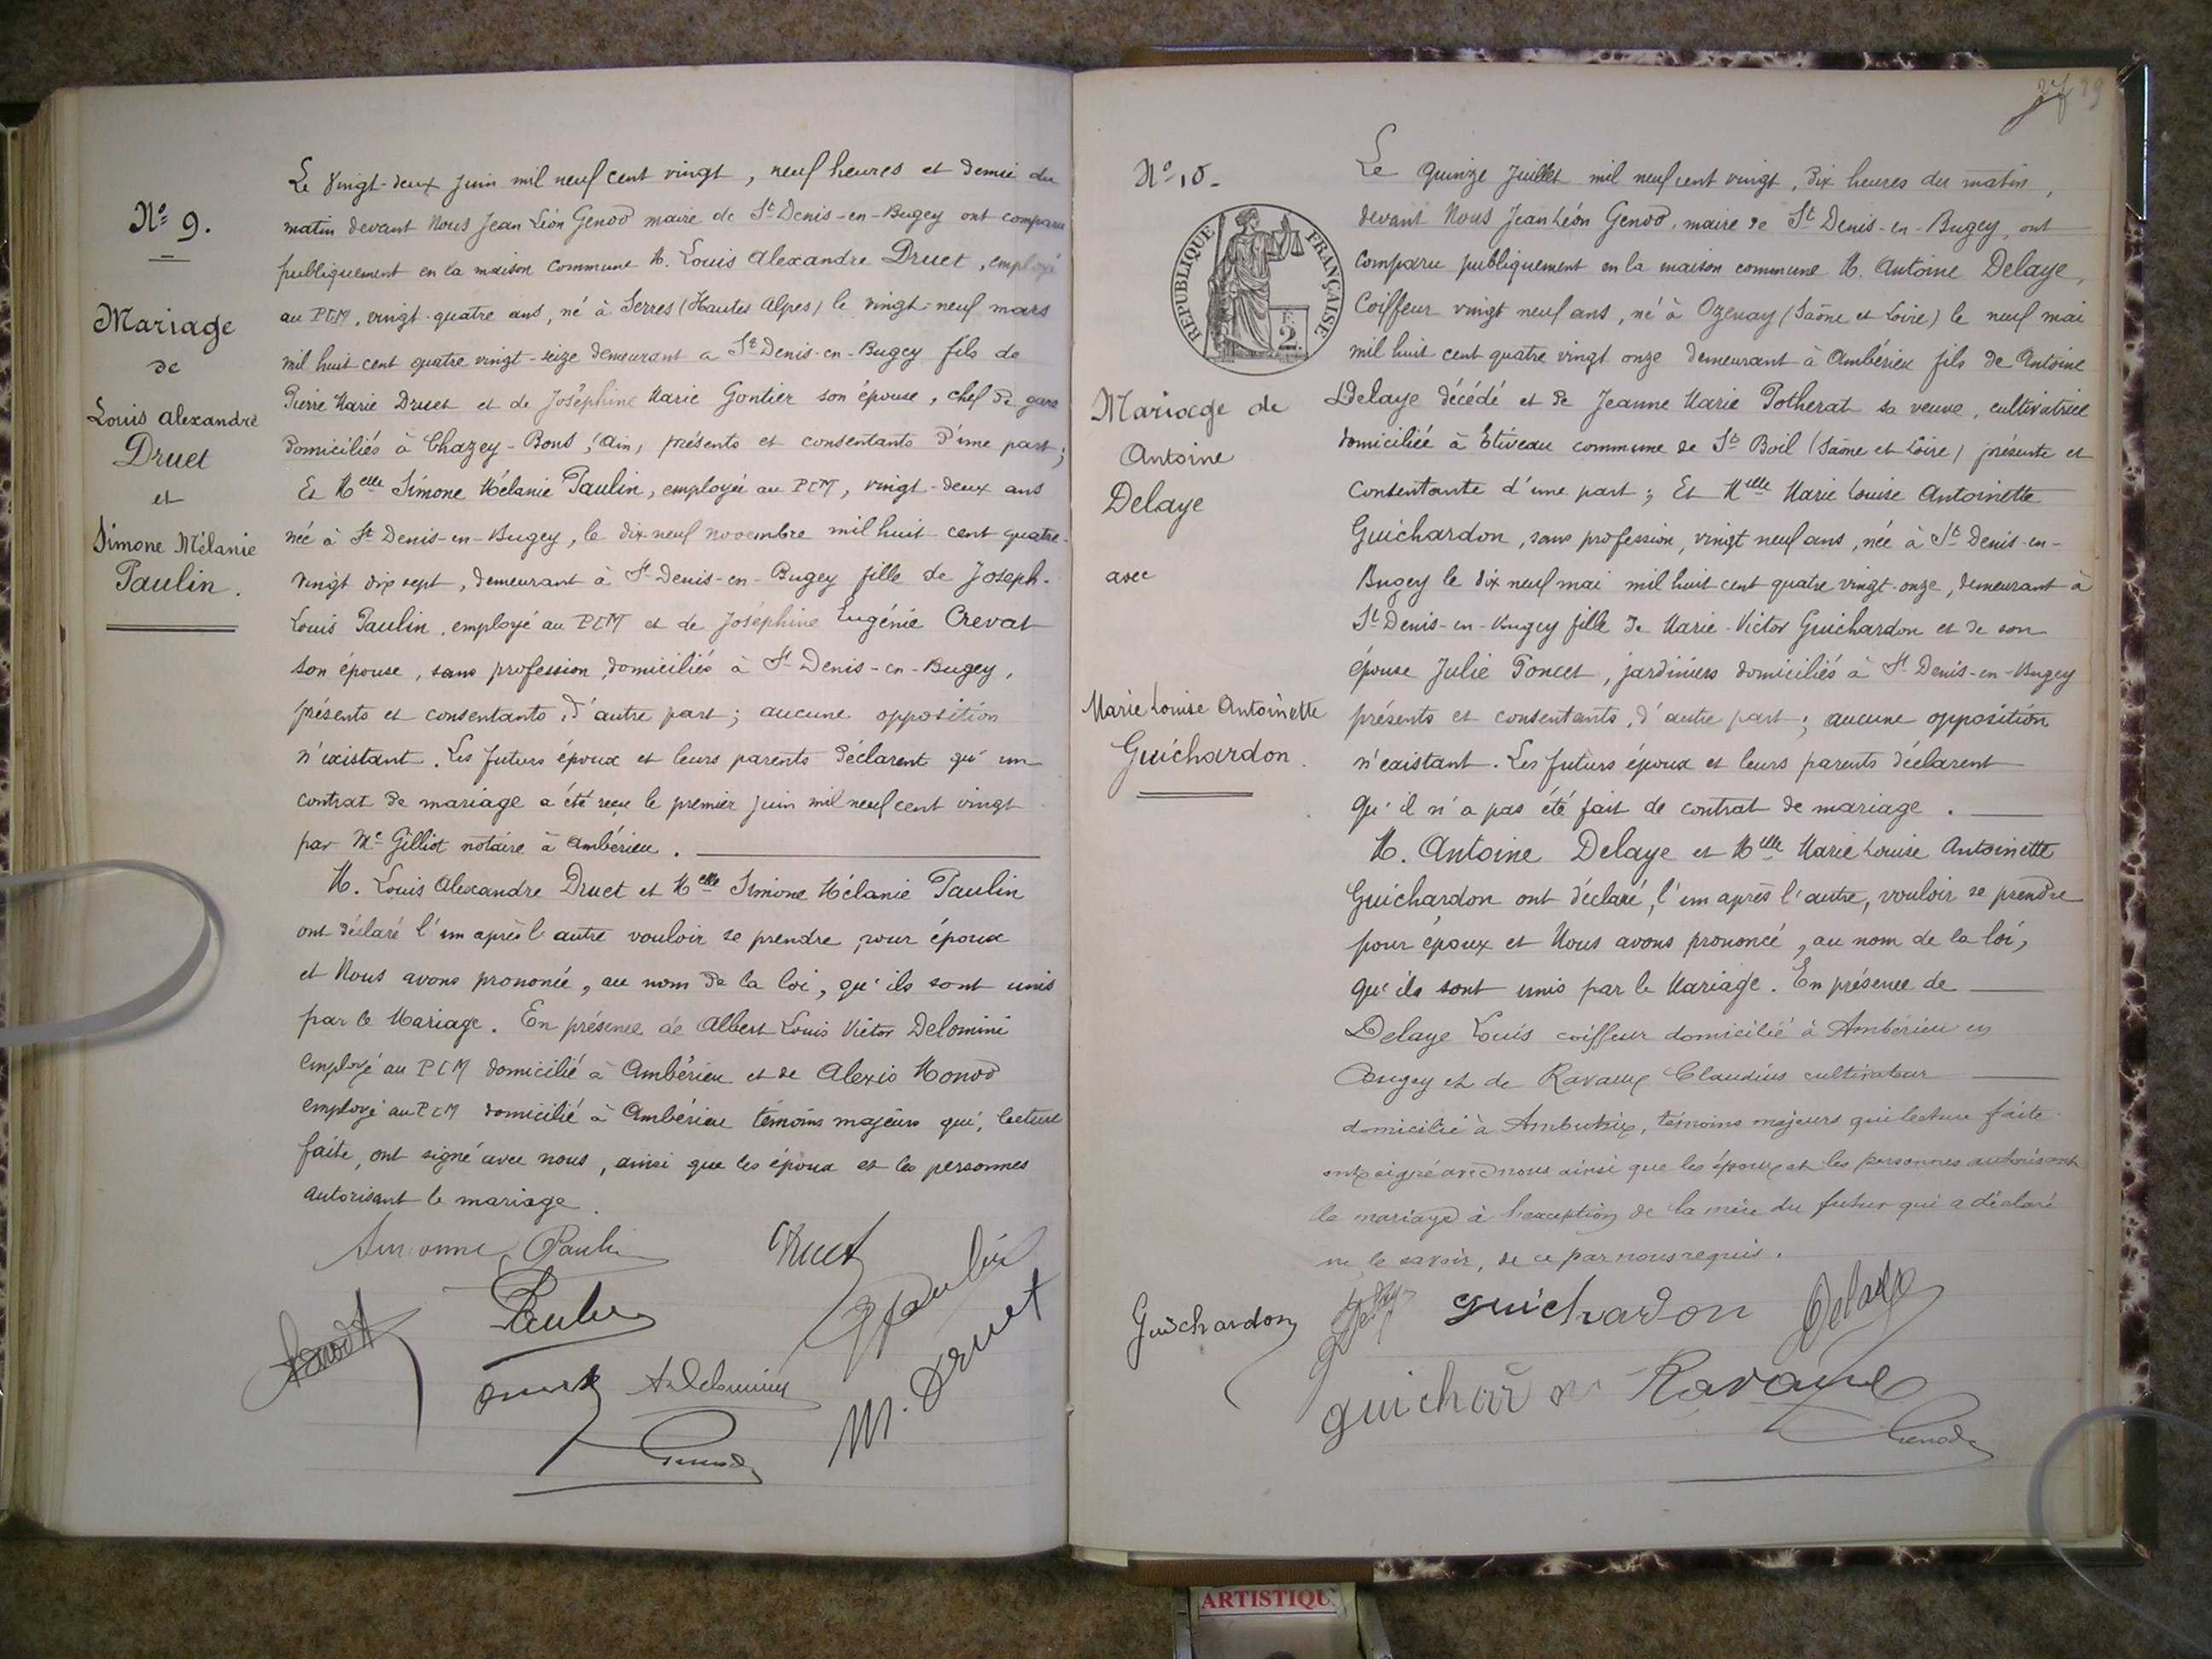 N° 9.
Mariage
de
Louis Alexandre
Druet
et
Simone Mélanie
Paulin.
Le vingt-deux juin mil neuf cent vingt, neuf heures et demie du
matin devant Nous Jean Léon Genod maire de St Denis-en-Bugey ont comparu
publiquement en la maison commune M. Louis Alexandre Druet, employé
au PLM, vingt-quatre ans, né à Serres (Hautes Alpes) le vingt-neuf mars
mil huit cent quatre vingt-seize demeurant à St Denis-en-Bugey fils de
Pierre Marie Druet et de Joséphine Marie Gontier son épouse, chef de gare
domiciliés à Chazey-Bons, (Ain) présents et consentants d'une part;
Et Melle Simone Mélanie Paulin, employée au PLM, vingt-deux ans
née à St Denis-en-Bugey, le dix neuf novembre mil huit cent quatre-
vingt dix sept, demeurant à St Denis-en-Bugey fille de Joseph-
Louis Paulin, employé au PLM et de Joséphine Eugénie Crevat
son épouse, sans profession, domiciliés à St Denis-en-Bugey,
présents et consentants, d'autre part; aucune opposition
n'existant. Les futurs époux et leurs parents déclarent qu'un
contrat de mariage a été reçu le premier juin mil neuf cent vingt
par Me Gilliot notaire à Ambérieu.
M. Louis Alexandre Druet et Melle Simone Mélanie Paulin
ont déclaré l'un après l'autre vouloir se prendre pour époux
et Nous avons prononcé, au nom de la loi, qu'ils sont unis
par le Mariage. En présence de Albert Louis Victor Delomini
employé au PLM domicilié à Ambérieu et de Alexis Monod
employé au PLM domicilié à Ambérieu témoins majeurs qui, lecture
faite, ont signé avec nous, ainsi que les époux et les personnes
autorisant le mariage.
Simonne Paulin
Druet
Paulin
M. Druet
Genod
N° 10.
RÉPUBLIQUE FRANÇAISE
2
Mariage de
Antoine
Delaye
avec
Marie Louise Antoinette
Guichardon.
Le quinze Juillet mil neuf cent vingt, dix heures du matin,
devant Nous Jean Léon Genod, maire de St Denis-en-Bugey, ont
comparu publiquement en la maison commune M. Antoine Delaye,
Coiffeur vingt neuf ans, né à Ozenay (Saône et Loire) le neuf mai
mil huit cent quatre vingt onze demeurant à Ambérieu fils de Antoine
Delaye décédé et de Jeanne Marie Potherat sa veuve, cultivatrice
domiciliée à Etiveau commune de St Boil (Saône et Loire) présente et
consentante d'une part; Et Melle Marie Louise Antoinette
Guichardon, sans profession, vingt neuf ans, née à St Denis-en-
Bugey le dix neuf mai mil huit cent quatre vingt-onze, demeurant à
St Denis-en-Bugey fille de Marie-Victor Guichardon et de son
épouse Julie Poncet, jardiniers domiciliés à St Denis-en-Bugey
présents et consentants, d'autre part; aucune opposition
n'existant. Les futurs époux et leurs parents déclarent
qu'il n'a pas été fait de contrat de mariage.
M. Antoine Delaye et Melle Marie Louise Antoinette
Guichardon ont déclaré, l'un après l'autre, vouloir se prendre
pour époux et Nous avons prononcé, au nom de la loi,
qu'ils sont unis par le Mariage. En présence de
Delaye Louis coiffeur domicilié à Ambérieu en
Bugey et de Ravaux Claudius cultivateur
domicilié à Ambutrix, témoins majeurs qui lecture faite
ont signé avec nous ainsi que les époux et les personnes autorisant
le mariage à l'exception de la mère du futur qui a déclaré
ne le savoir, de ce par nous requis.
Guichardon
guichardon
Delaye
guichardon
Ravaux
Genod
ARTISTIQU